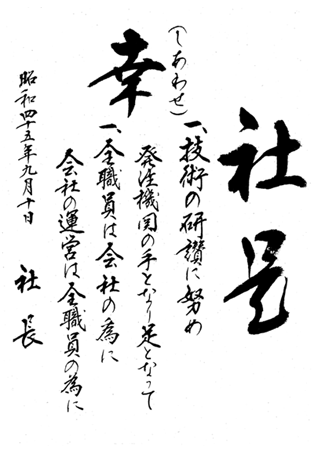 社是
幸
(しあわせ)
一、技術の研讃に努め
発注機関の手となり足となって
一、全職員は会社の為に
会社の運営は全職員の為に
昭和四十五年九月十日
社長